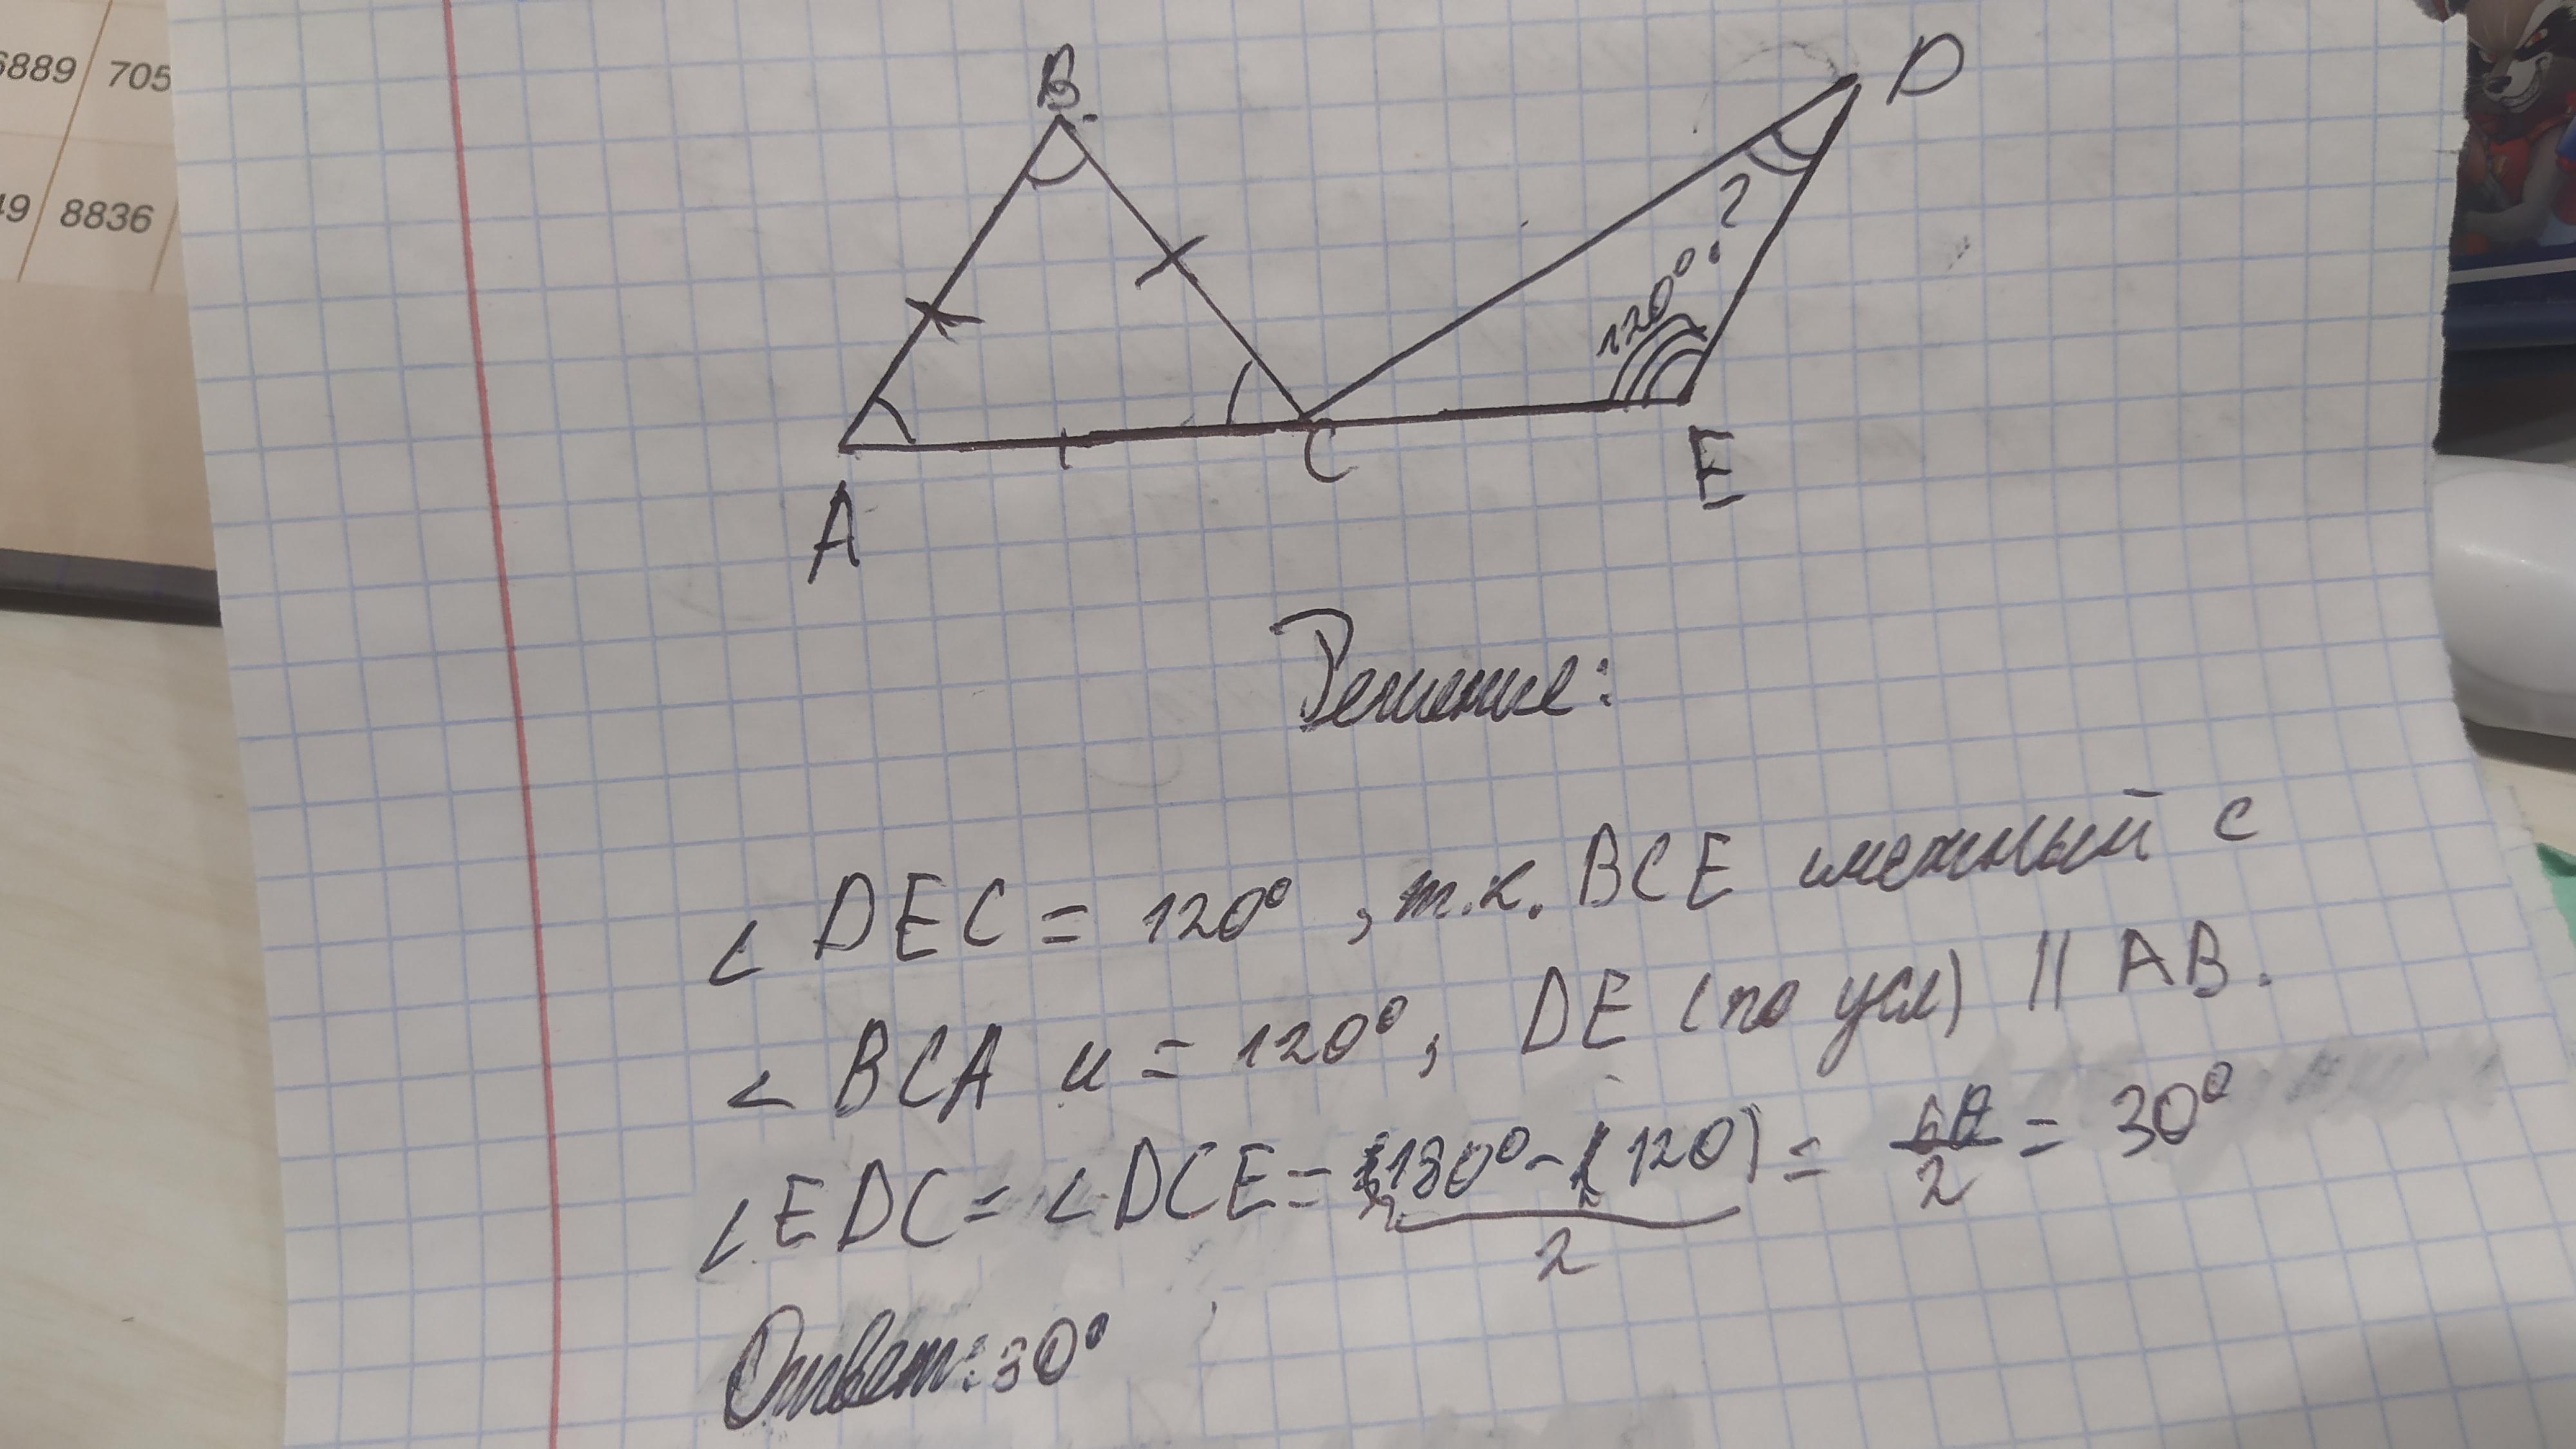 6889 705
49 8836
B
D
?
120°
A
C
E
Решение:
∠ DEC = 120°, т.к. BCE смежный с
∠ BCA и = 120°, DE (по усл) || AB.
∠EDC = ∠DCE = (180° - (120) / 2 = 60 / 2 = 30°
Ответ: 30°